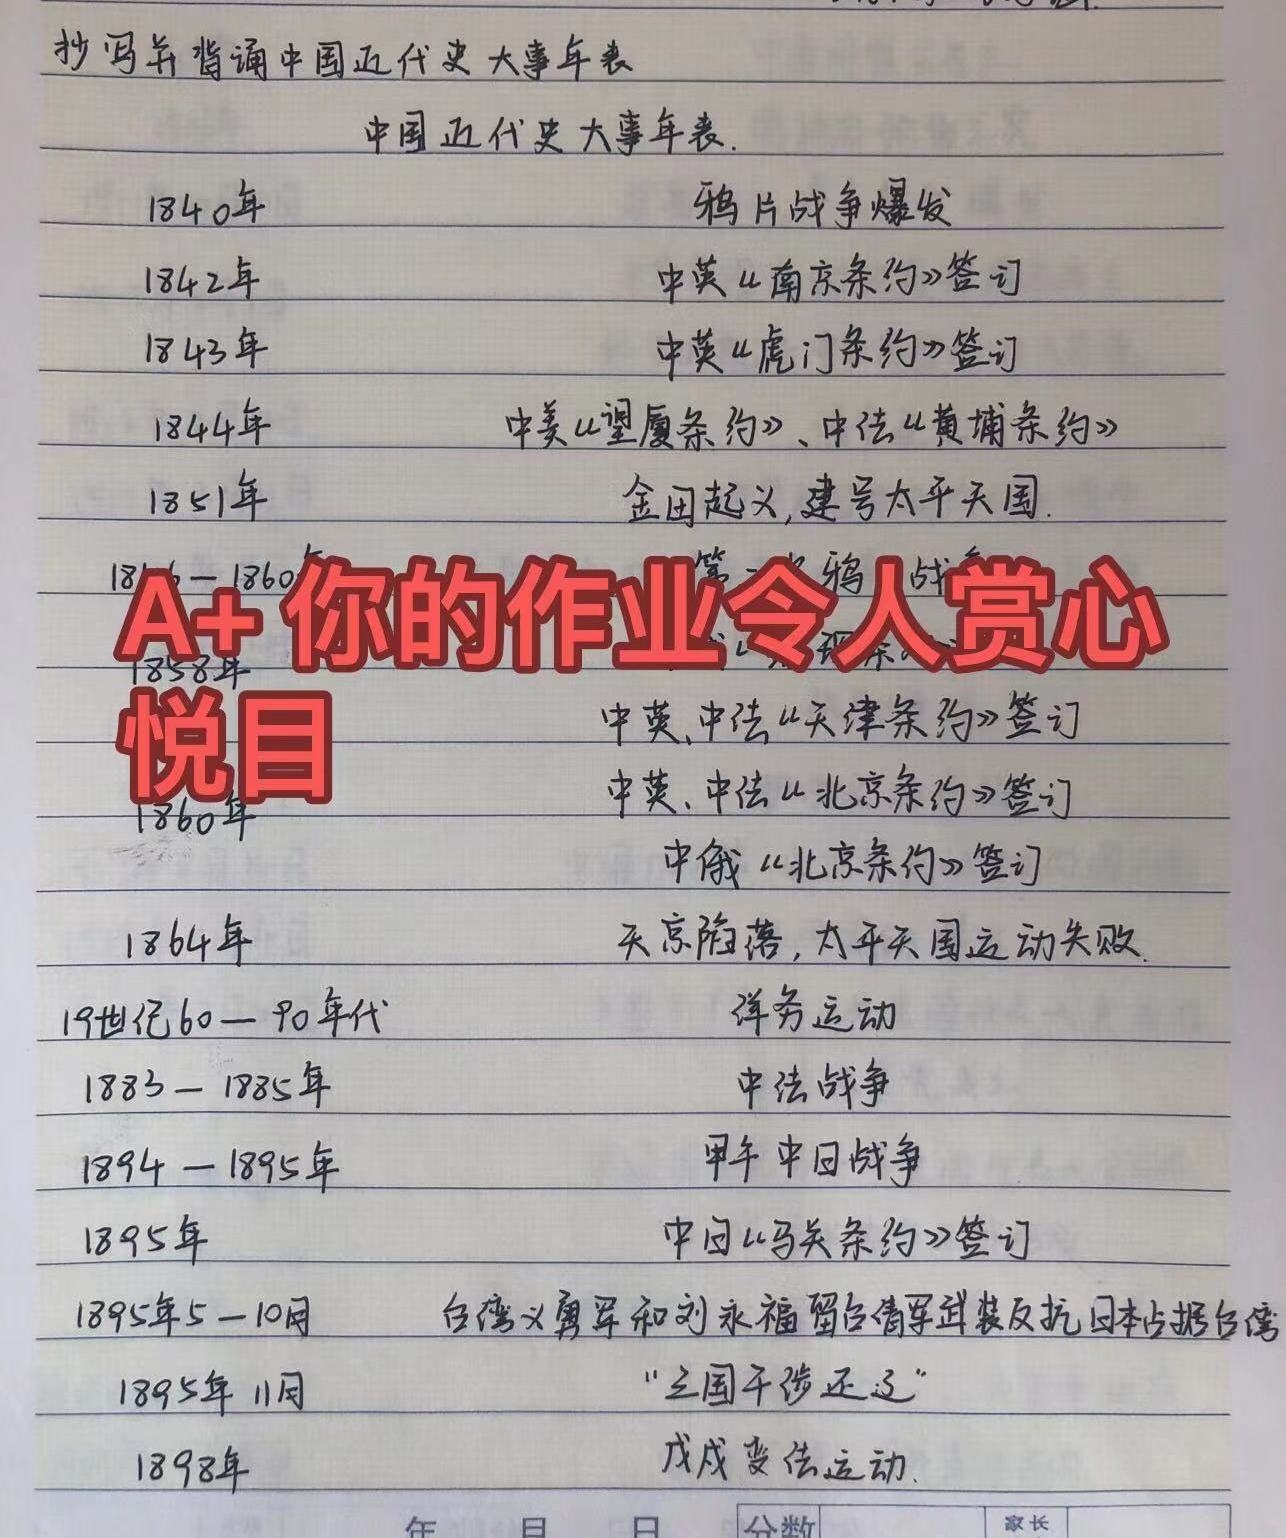 抄写并背诵中国近代史大事年表
中国近代史大事年表.
1840年 鸦片战争爆发
1842年 中英《南京条约》签订
1843年 中英《虎门条约》签订
1844年 中美《望厦条约》、中法《黄埔条约》
1851年 金田起义,建号太平天国.
1860年 鸦 战
A+ 你的作业令人赏心
1858年
悦目
中英、中法《天津条约》签订
1860年 中英、中法《北京条约》签订
中俄《北京条约》签订
1864年 天京陷落,太平天国运动失败.
19世纪60—90年代 洋务运动
1883—1885年 中法战争
1894—1895年 甲午中日战争
1895年 中日《马关条约》签订
1895年5—10月 台湾义勇军和刘永福留台清军武装反抗日本占据台湾
1895年11月 "三国干涉还辽"
1898年 戊戌变法运动.
年 月 日 分数 家长